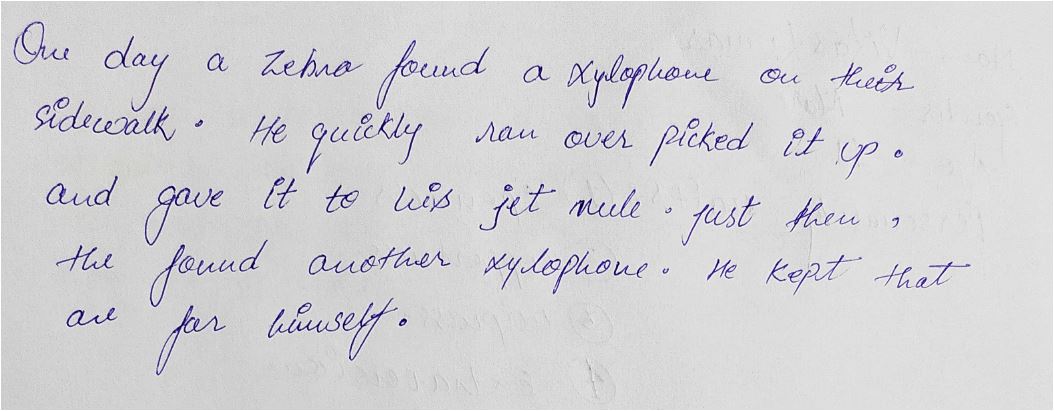 One day a zebra found a xylophone on their
sidewalk. He quickly ran over picked it up.
and gave it to his jet mule. just then,
the found another xylophone. He kept that
one for himself.